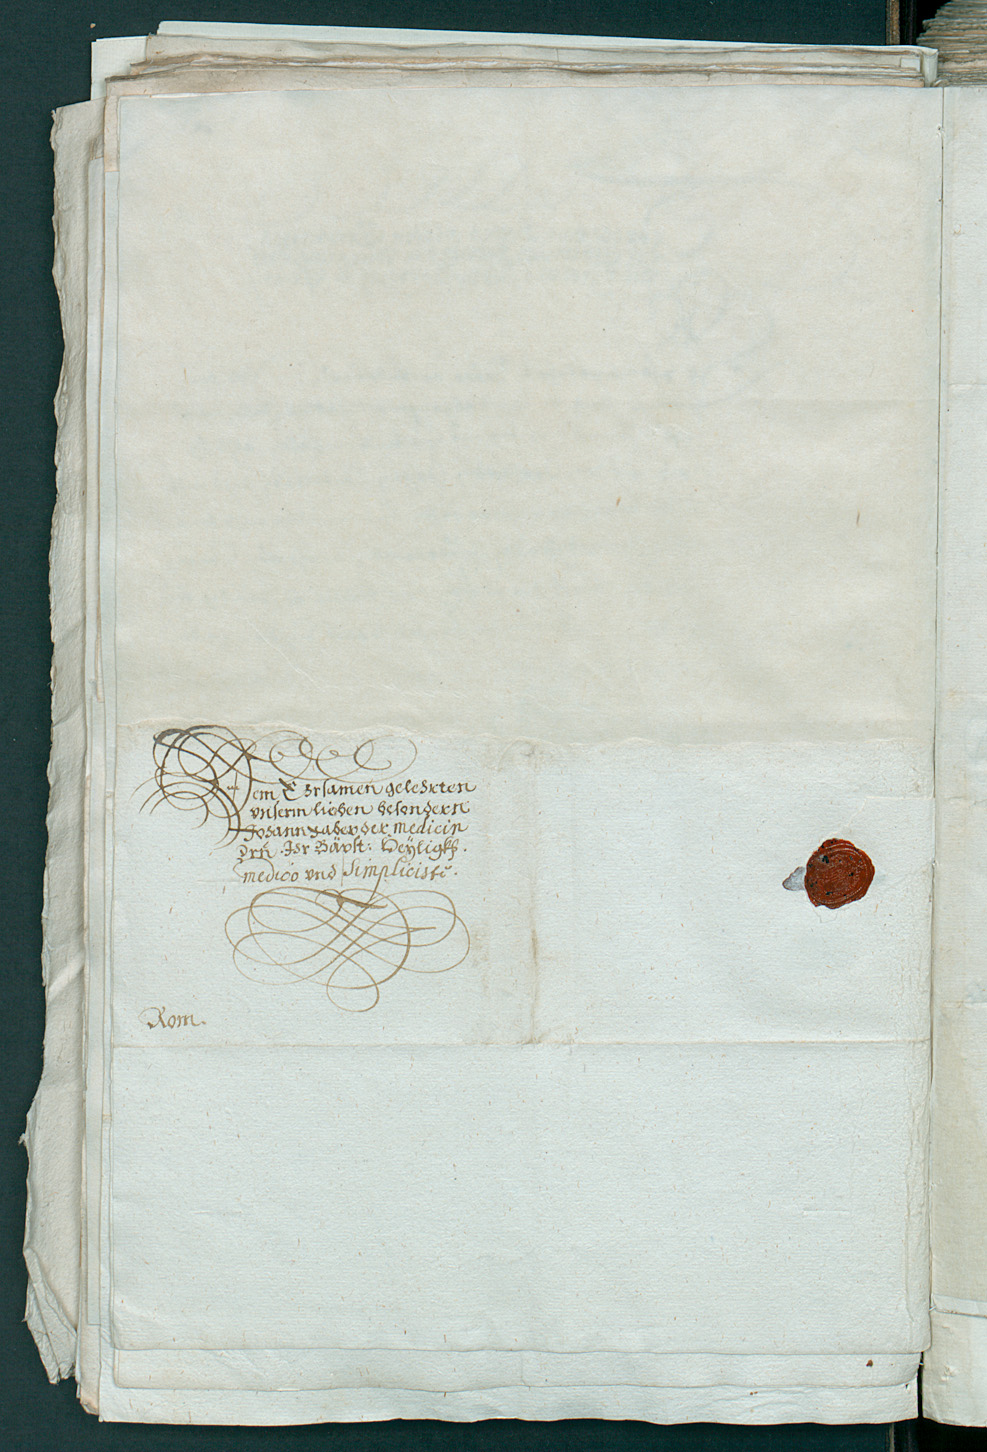 Dem Ersamen gelehrten
vnserm lieben besondern
Johann Faber der Medicin
Drn. Ihr Bäpst: Heyligkh.
medico und Simplicistn.
Rom.